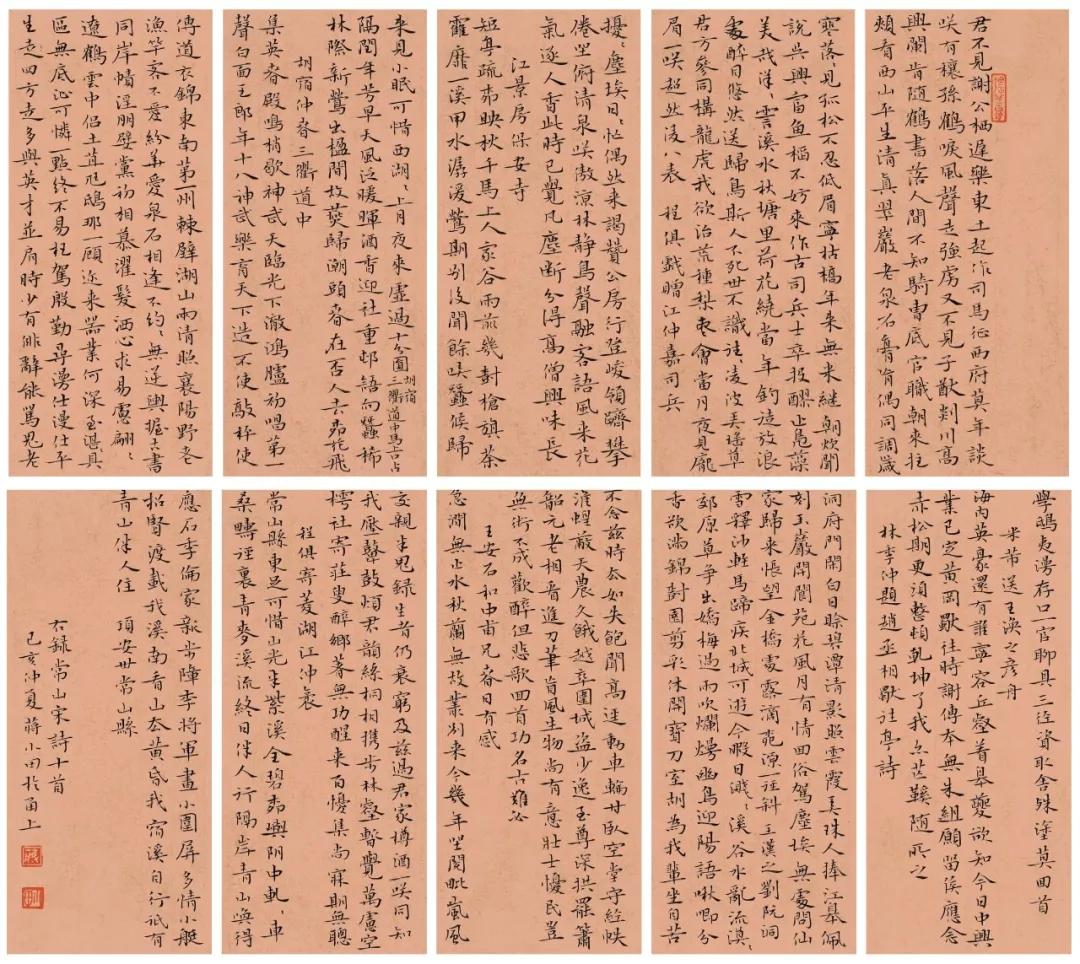 君不見謝公栖遲樂東土起作司馬征西府莫年談
咲有穰孫鶴唳風聲走強虜又不見子猷剡川高
興闌肯随鶴書落人間不知騎曹底官職朝來拄
頰看西山平生清真翠巖老泉石膏肓偶同調歲
寒落見孤松不忍低眉寧枯槁年来無米继朝炊聞
說吴興富魚稻不妨来作古司兵士卒投醪止凫藻
美哉洋々霅溪水秋塘里荷花繞當年釣造放浪
家醉目悠然送歸鳥斯人不死世不識往々凌波美瑤草
君方參同構龍虎我欲治荒種梨棗會當月夜見龐
眉一咲超然凌八表 程俱戲贈江仲嘉司兵
擾々塵埃日々忙偶然来謁贊公房行登峻領躋攀
倦坐俯清泉咲傲凉林静鳥聲融客語風来花
氣逐人香此時已覺凡塵斷分得高僧興味長
江景房保安寺
短萁疏弗映秋千馬上人家谷雨前幾對槍旗茶
霍靡一溪甲水潺湲鶯期别後聞餘哢蠶候歸
来見小眠可惜西湖々上月夜来虚過十分圓 胡宿三衢道中馬上口占
隔閏年芳早天風泛暖暉酒香迎社重邨語向蠶稀
林際新鶯出楹間故燕歸潮頭春在否人去弗花飛
胡宿仲春三衢道中
集英春殿鳴梢歇神武天臨光下澈鴻臚初唱第一
聲白面王郎年十八神武樂育天下造不使敲枰使
傳道衣錦東南第一州棘壁湖山兩清照襄陽野老
漁竿客不愛紛華愛泉石相逢不約々無逆輿握古書
同岸幘淫朋嬖黨初相慕濯髮洒心求易慮翩々
遼鶴雲中侣土苴尪鴟那一顧迩来器業何深玉湛具
區無底沚可憐一點終不易枉駕殷勤尋漫仕平
生走四方走多與英才並肩時少有俳辭能罵兄老
學鴟夷漫存口一官聊具三逕資取舍殊塗莫回首
米芾送王涣之彦舟
海内英豪還有誰寧容丘壑着皋夔欲知今日中興
業已定黄岡歇往時謝傅本無朱組願留侯應念
赤松期更須整頓乾坤了我亦芒鞋随所之
林季仲題趙丞相歇往亭詩
洞府門閑白日賒碧潭清影照雲霞美珠人捧江皋佩
刻玉巖開閬苑花風月有情回俗駕塵埃無處問仙
家歸来悵望金橋夐露滴苑源一逕斜 王漢之劉阮洞
雪釋沙乾馬蹄疾北城可遊今暇日濺々溪谷水亂流漠々
郊原草争出嬌梅過雨吹爛熳幽鳥迎陽語啾唧分
香欲满錦封園剪彩休開寶刀室胡為我輩坐自苦
不念兹時去如失飽聞高逕動車輪甘卧空堂守經帙
淮蝗蔽天農久餓越卒圍城盜少逸至尊深拱罷簫
韶元老相看進刀筆肯風生物尚有意壯士憂民豈
無術不成歡醉但悲歌回首功名古難必
王安石和中甫兄春日有感
急澗無止水秋蘭無故叢别来今幾年坐閱毗嵐風
交親半兄録生者仍衰窮及兹過君家樽酒一咲同知
我壓鼙鼓煩君韻絲桐相携步林壑暫覺萬慮空
樗社寄莊叟醉鄉著無功醒来百憂集尚寐期無聰
程俱寄菱湖江仲裹
常山縣東足可惜山光半紫溪全碧弗輿阴中軋々車
桑疇逕裏青々麥溪流終日伴人行隔岸青山唤得
應石季倫家新步障李將軍畫小圍屏多情小艇
招賢渡載我溪南看山去黄昏我宿溪自行祇有
青山伴人住 項安世常山縣
右録常山宋詩十首
己亥仲夏蒋小田於甬上